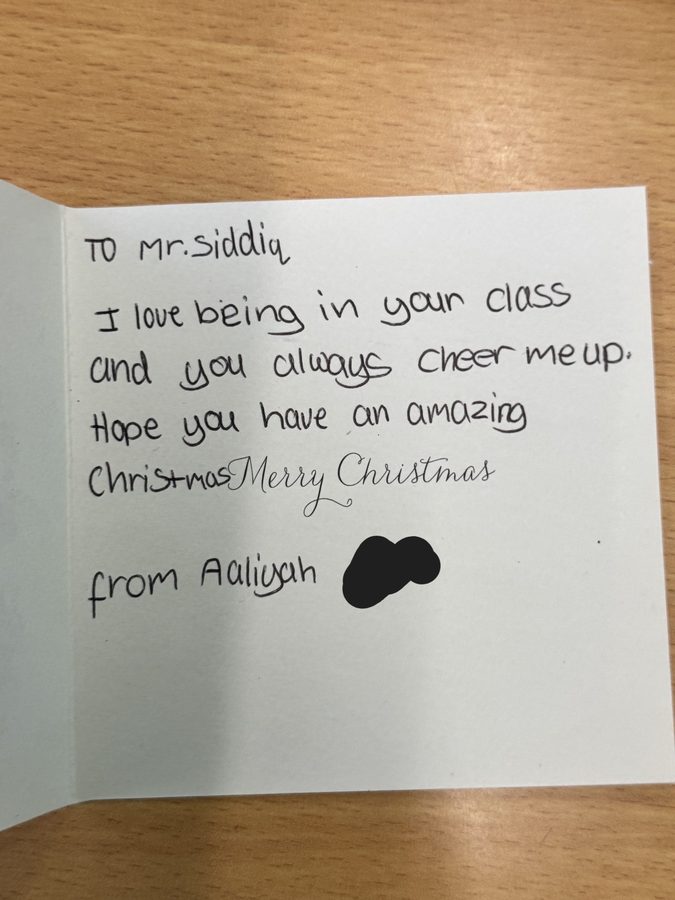 To Mr. Siddiq
I love being in your class
and you always cheer me up.
Hope you have an amazing
Christmas Merry Christmas
from Aaliyah